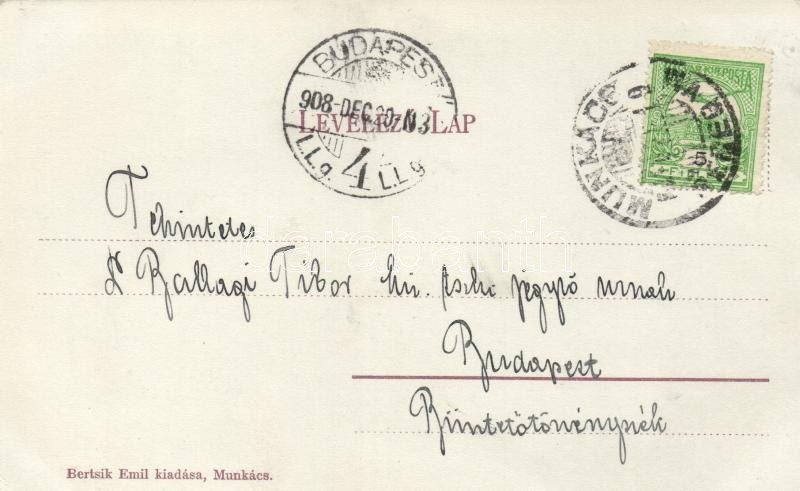 BUDAPEST
908 DEC 20 N3
4
I.L.g. I.L.g
MUNKÁCS
POSTA
LEVELEZŐ-LAP
Tekintetes
Dr Ballagi Tibor kir. tszki jegyző urnak
Budapest
Büntetőtörvényszék
Bertsik Emil kiadása, Munkács.